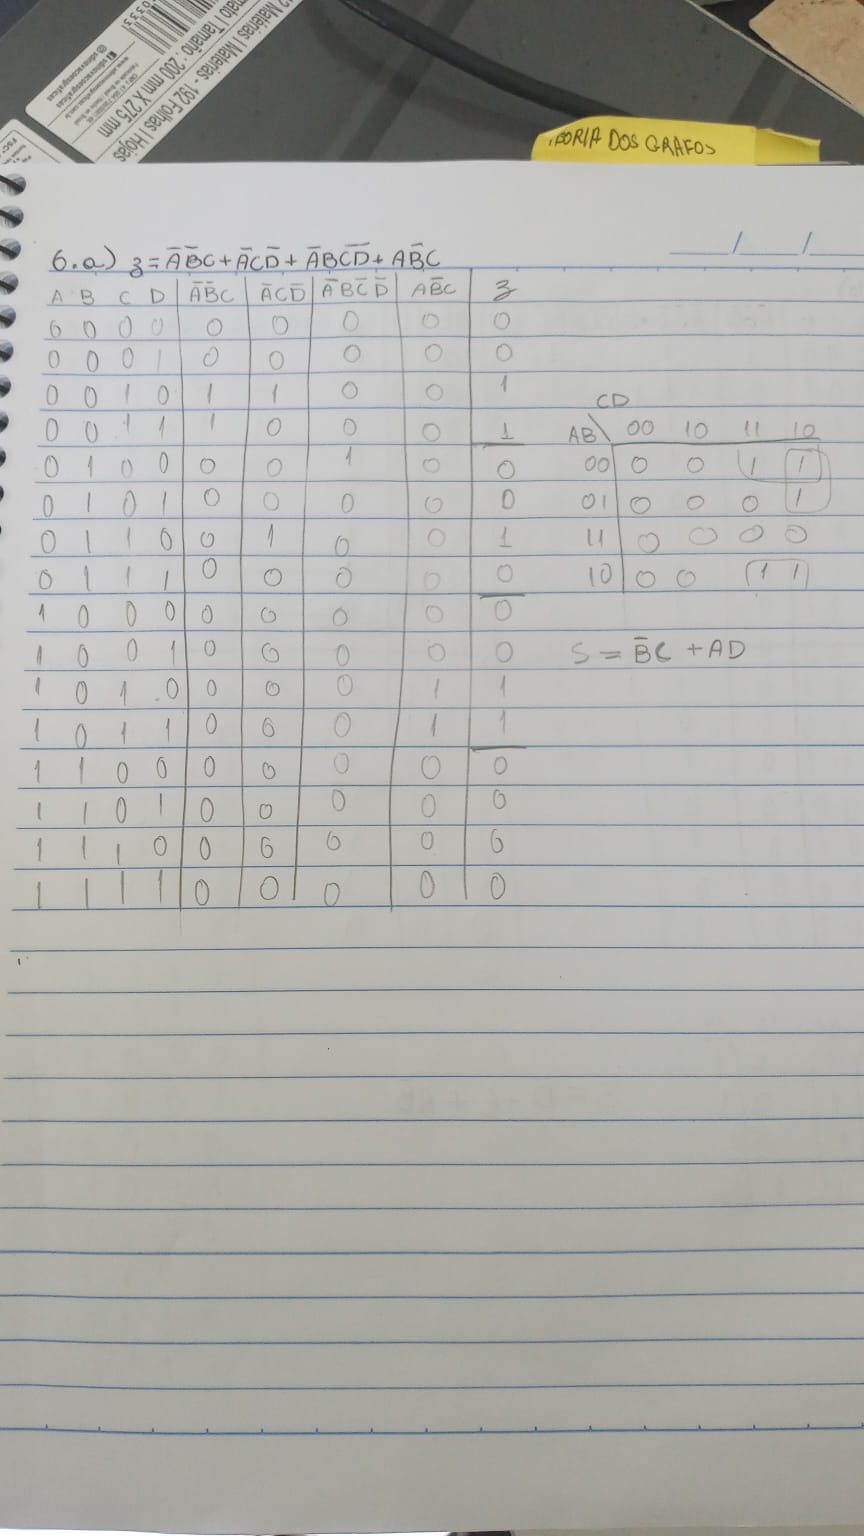 03331
mato | Tamaño: 200 mm X 275 mm
2 Matérias | Materias - 192 Folhas | Hojas
TEORIA DOS GRAFOS
__/__/__
6.a) z = A̅B̅C + A̅CD̅ + A̅BC̅D̅ + AB̅C
A B C D A̅B̅C A̅CD̅ A̅BC̅D̅ AB̅C z
0 0 0 0 0 0 0 0 0
0 0 0 1 0 0 0 0 0
0 0 1 0 1 1 0 0 1
0 0 1 1 1 0 0 0 1
0 1 0 0 0 0 1 0 0
0 1 0 1 0 0 0 0 0
0 1 1 0 0 1 0 0 1
0 1 1 1 0 0 0 0 0
1 0 0 0 0 0 0 0 0
1 0 0 1 0 0 0 0 0
1 0 1 0 0 0 0 1 1
1 0 1 1 0 0 0 1 1
1 1 0 0 0 0 0 0 0
1 1 0 1 0 0 0 0 0
1 1 1 0 0 0 0 0 0
1 1 1 1 0 0 0 0 0
CD
AB\ 00 10 11 10
00 0 0 1 1
01 0 0 0 1
11 0 0 0 0
10 0 0 1 1
S = B̅C + AD